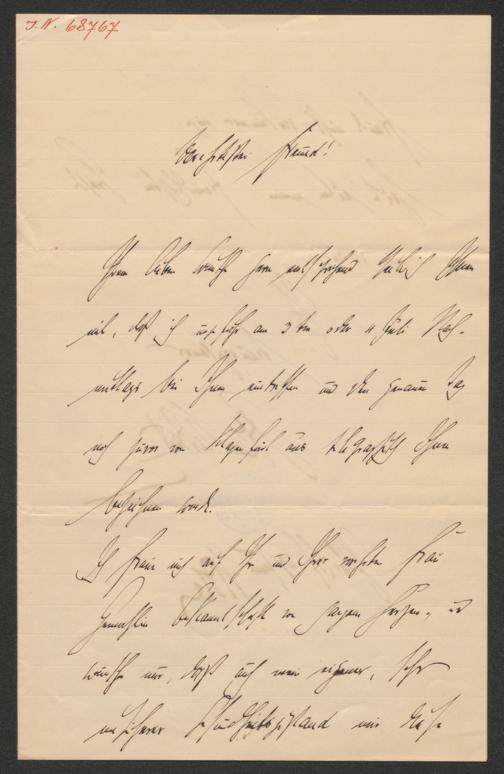 I.N. 68767
Verehrtester Freund!
Ihrem lieben Wunsche gern entsprechend theile ich Ihnen
mit, daß ich ungefähr am 3ten oder 4 Juli Nach-
mittags bei Ihnen eintreffen und den genauen Tag
noch zuvor von Klagenfurt aus telegraphisch Ihnen
bezeichnen werde.
Ich freue mich auf Ihre und Ihrer verehrten Frau
Gemahlin Bekanntschaft von ganzem Herzen, und
wünsche nur, daß auch mein eigener, sehr
unsicherer Gesundheitszustand mir diese